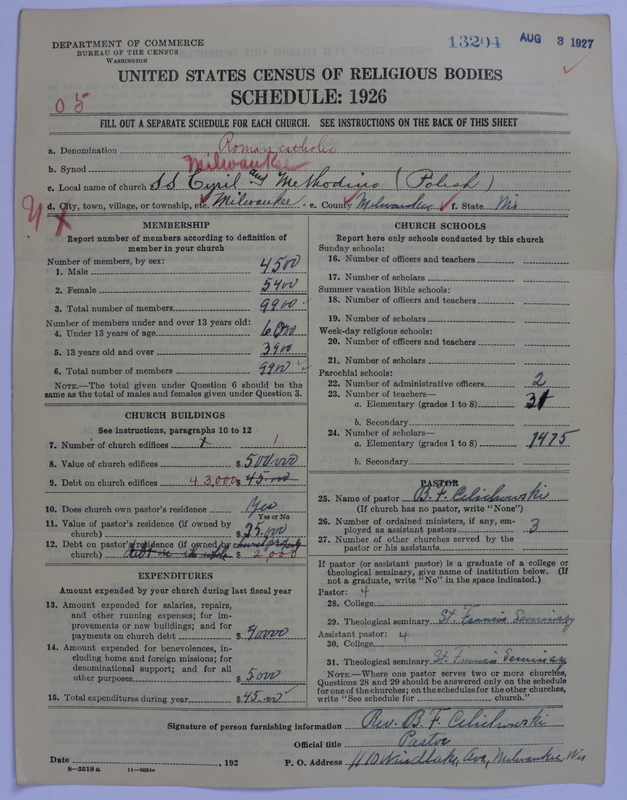 DEPARTMENT OF COMMERCE
BUREAU OF THE CENSUS
WASHINGTON
13204 AUG 3 1927
UNITED STATES CENSUS OF RELIGIOUS BODIES
SCHEDULE: 1926
05
FILL OUT A SEPARATE SCHEDULE FOR EACH CHURCH. SEE INSTRUCTIONS ON THE BACK OF THIS SHEET
a. Denomination Roman catholic
b. Synod Milwaukee
c. Local name of church SS Cyril and Methodius (Polish)
d. City, town, village, or township, etc. Milwaukee. e. County Milwaukee f. State Wis
MEMBERSHIP
Report number of members according to definition of member in your church
Number of members, by sex:
1. Male 4500
2. Female 5400
3. Total number of members 9900
Number of members under and over 13 years old:
4. Under 13 years of age 6000
5. 13 years old and over 3900
6. Total number of members 9900
NOTE.—The total given under Question 6 should be the same as the total of males and females given under Question 3.
CHURCH BUILDINGS
See instructions, paragraphs 10 to 12
7. Number of church edifices x 1
8. Value of church edifices $ 500,000
9. Debt on church edifices 43,000 $ 45.00
10. Does church own pastor's residence Yes
Yes or No
11. Value of pastor's residence (if owned by church) $ 25.000
12. Debt on pastor's residence (if owned by church) $ 2,000
EXPENDITURES
Amount expended by your church during last fiscal year
13. Amount expended for salaries, repairs, and other running expenses; for improvements or new buildings; and for payments on church debt $ 40000
14. Amount expended for benevolences, including home and foreign missions; for denominational support; and for all other purposes $ 5000
15. Total expenditures during year $ 45.00
CHURCH SCHOOLS
Report here only schools conducted by this church
Sunday schools:
16. Number of officers and teachers
17. Number of scholars
Summer vacation Bible schools:
18. Number of officers and teachers
19. Number of scholars
Week-day religious schools:
20. Number of officers and teachers
21. Number of scholars
Parochial schools:
22. Number of administrative officers 2
23. Number of teachers—
a. Elementary (grades 1 to 8)
b. Secondary
24. Number of scholars—
a. Elementary (grades 1 to 8) 1475
b. Secondary
PASTOR
25. Name of pastor B. F. Celichowski
(If church has no pastor, write "None")
26. Number of ordained ministers, if any, employed as assistant pastors 3
27. Number of other churches served by the pastor or his assistants
If pastor (or assistant pastor) is a graduate of a college or theological seminary, give name of institution below. (If not a graduate, write "No" in the space indicated.)
Pastor: 4
28. College
29. Theological seminary St. Francis Seminary
Assistant pastor: 4
30. College
31. Theological seminary St. Francis Seminary
NOTE.—Where one pastor serves two or more churches, Questions 28 and 29 should be answered only on the schedule for one of the churches; on the schedules for the other churches, write "See schedule for church."
Signature of person furnishing information Rev. B. F. Celichowski
Official title Pastor
Date , 192 P. O. Address Ave, Milwaukee Wis
8—5518a 11—9054a